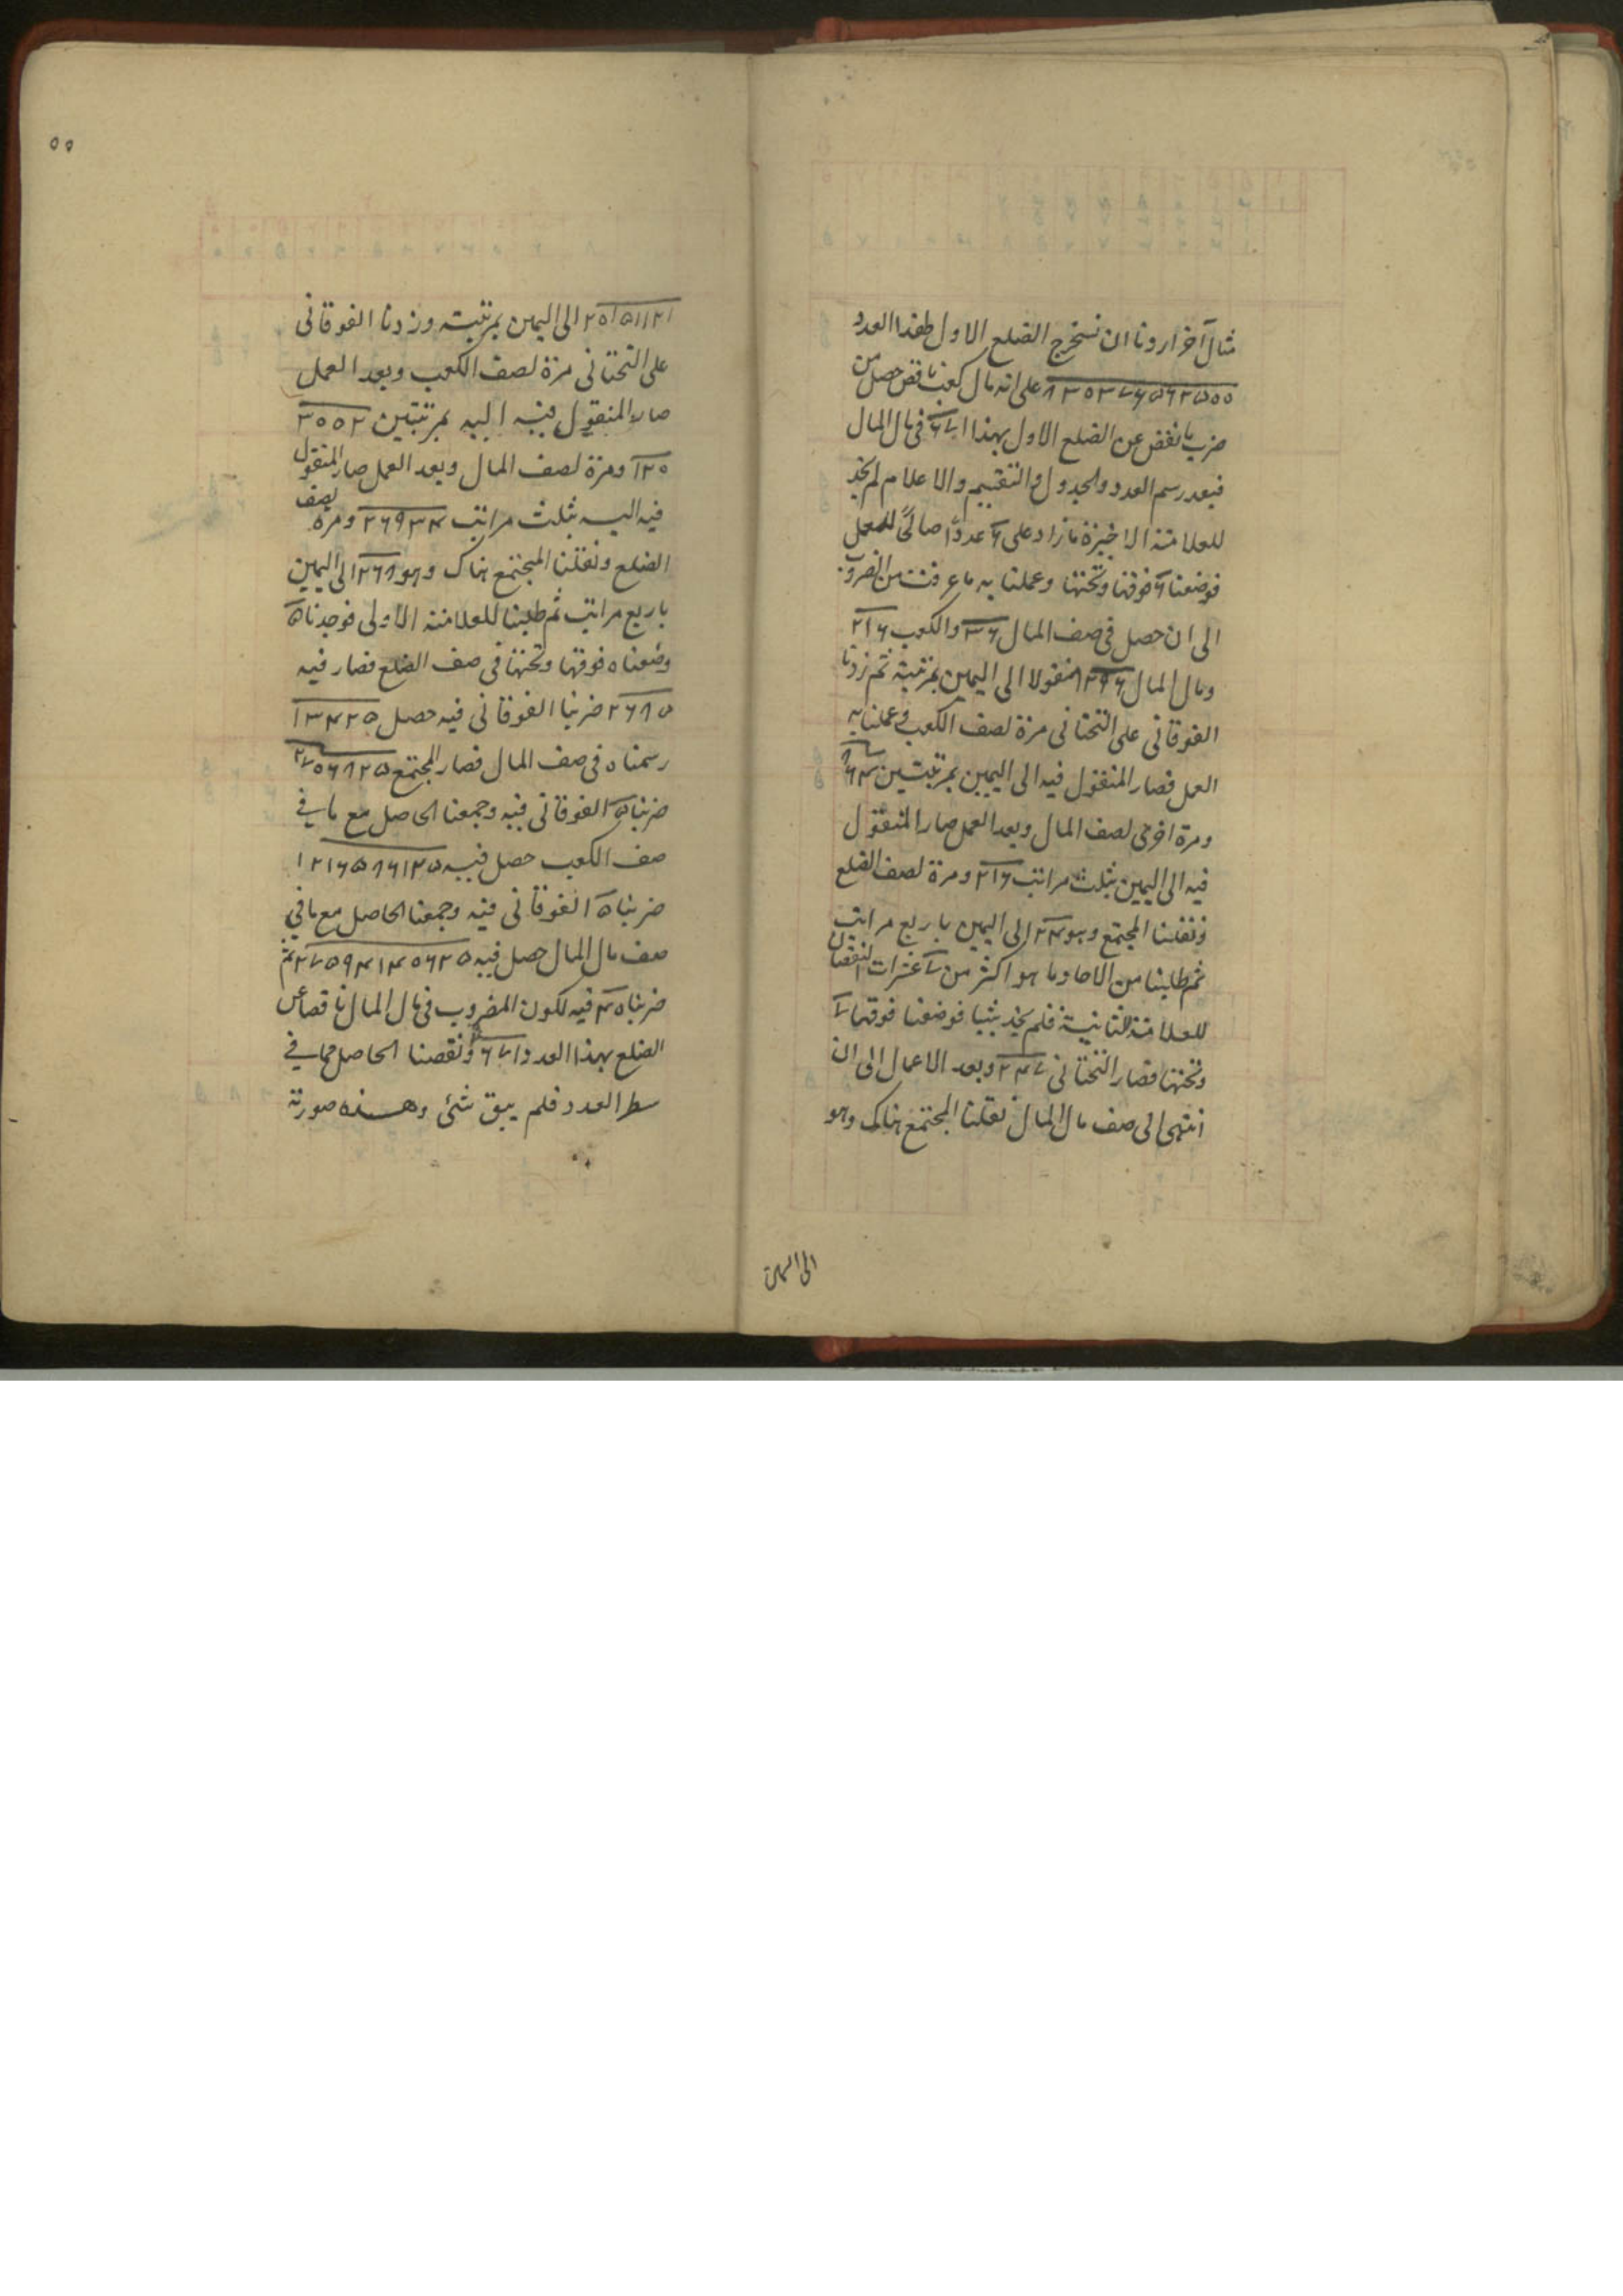 مثال آخر اردنا ان نستخرج الضلع الاول لهذا العدد
على انه مال كعب ناقص حصل من
ضرب ما نقص عن الضلع الاول بهذا فى مال المال
فبعد رسم العدد والجدول والتقسيم والاعلام لم نجد
للعلامة الاخيرة ما زاد على ۶ عددا صالحا للعمل
فوضعنا ۶ فوقها وتحتها وعملنا به ما عرفت من الضروب
الى ان حصل فى صف المال ۳۶ والكعب ۲۱۶
ومال المال ۱۲۹۶ منقولا الى اليمين بمرتبة ثم زدنا
الفوقانى على التحتانى مرة لصف الكعب وعملنا به
العمل فصار المنقول فيه الى اليمين بمرتبتين ۸۶۴
ومرة اخرى لصف المال وبعد العمل صار المنقول
فيه الى اليمين بثلث مراتب ۲۱۶ ومرة لصف الضلع
ونقلنا المجتمع وهو ۲۴ الى اليمين باربع مراتب
ثم طلبنا من الاحاد ما هو اكثر من ۷ عشرات لنقصان
للعلامة الثانية فلم نجد شيئا فوضعنا فوقها ۷
وتحتها فصار التحتانى ۲۴۷ وبعد الاعمال الى ان
انتهى الى صف مال المال نقلنا المجتمع هناك وهو
الى اليمين
۵۵
۲۰۱۵۱۱۲۱ الى اليمين بمرتبة وزدنا الفوقانى
على التحتانى مرة لصف الكعب وبعد العمل
صار المنقول فيه اليه بمرتبتين ۳۰۰۲
ومرة لصف المال وبعد العمل صار المنقول
فيه اليه بثلث مراتب ۲۶۹۳۴ ومرة لصف
الضلع ونقلنا المجتمع هناك وهو ۲۶۸ الى اليمين
باربع مراتب ثم طلبنا للعلامة الاولى فوجدناه ۵
وضعناه فوقها وتحتها فى صف الضلع فصار فيه
۲۶۸۵ ضربنا الفوقانى فيه حصل ۱۳۴۲۵
رسمناه فى صف المال فصار المجتمع ۲۷۰۶۸۲۵
ضربنا ۵ الفوقانى فيه وجمعنا الحاصل مع ما فى
صف الكعب حصل فيه ۱۲۱۶۵۸۶۱۲۵
ضربنا ۵ الفوقانى فيه وجمعنا الحاصل مع ما فى
صف مال المال حصل فيه ۲۷۵۹۴۱۴۰۶۲۵ ثم
ضربناه فيه لكون المضروب فى مال المال ناقصا عن
الضلع بهذا العدد ونقصنا الحاصل مما فى
سطر العدد فلم يبق شئ وهذه صورته